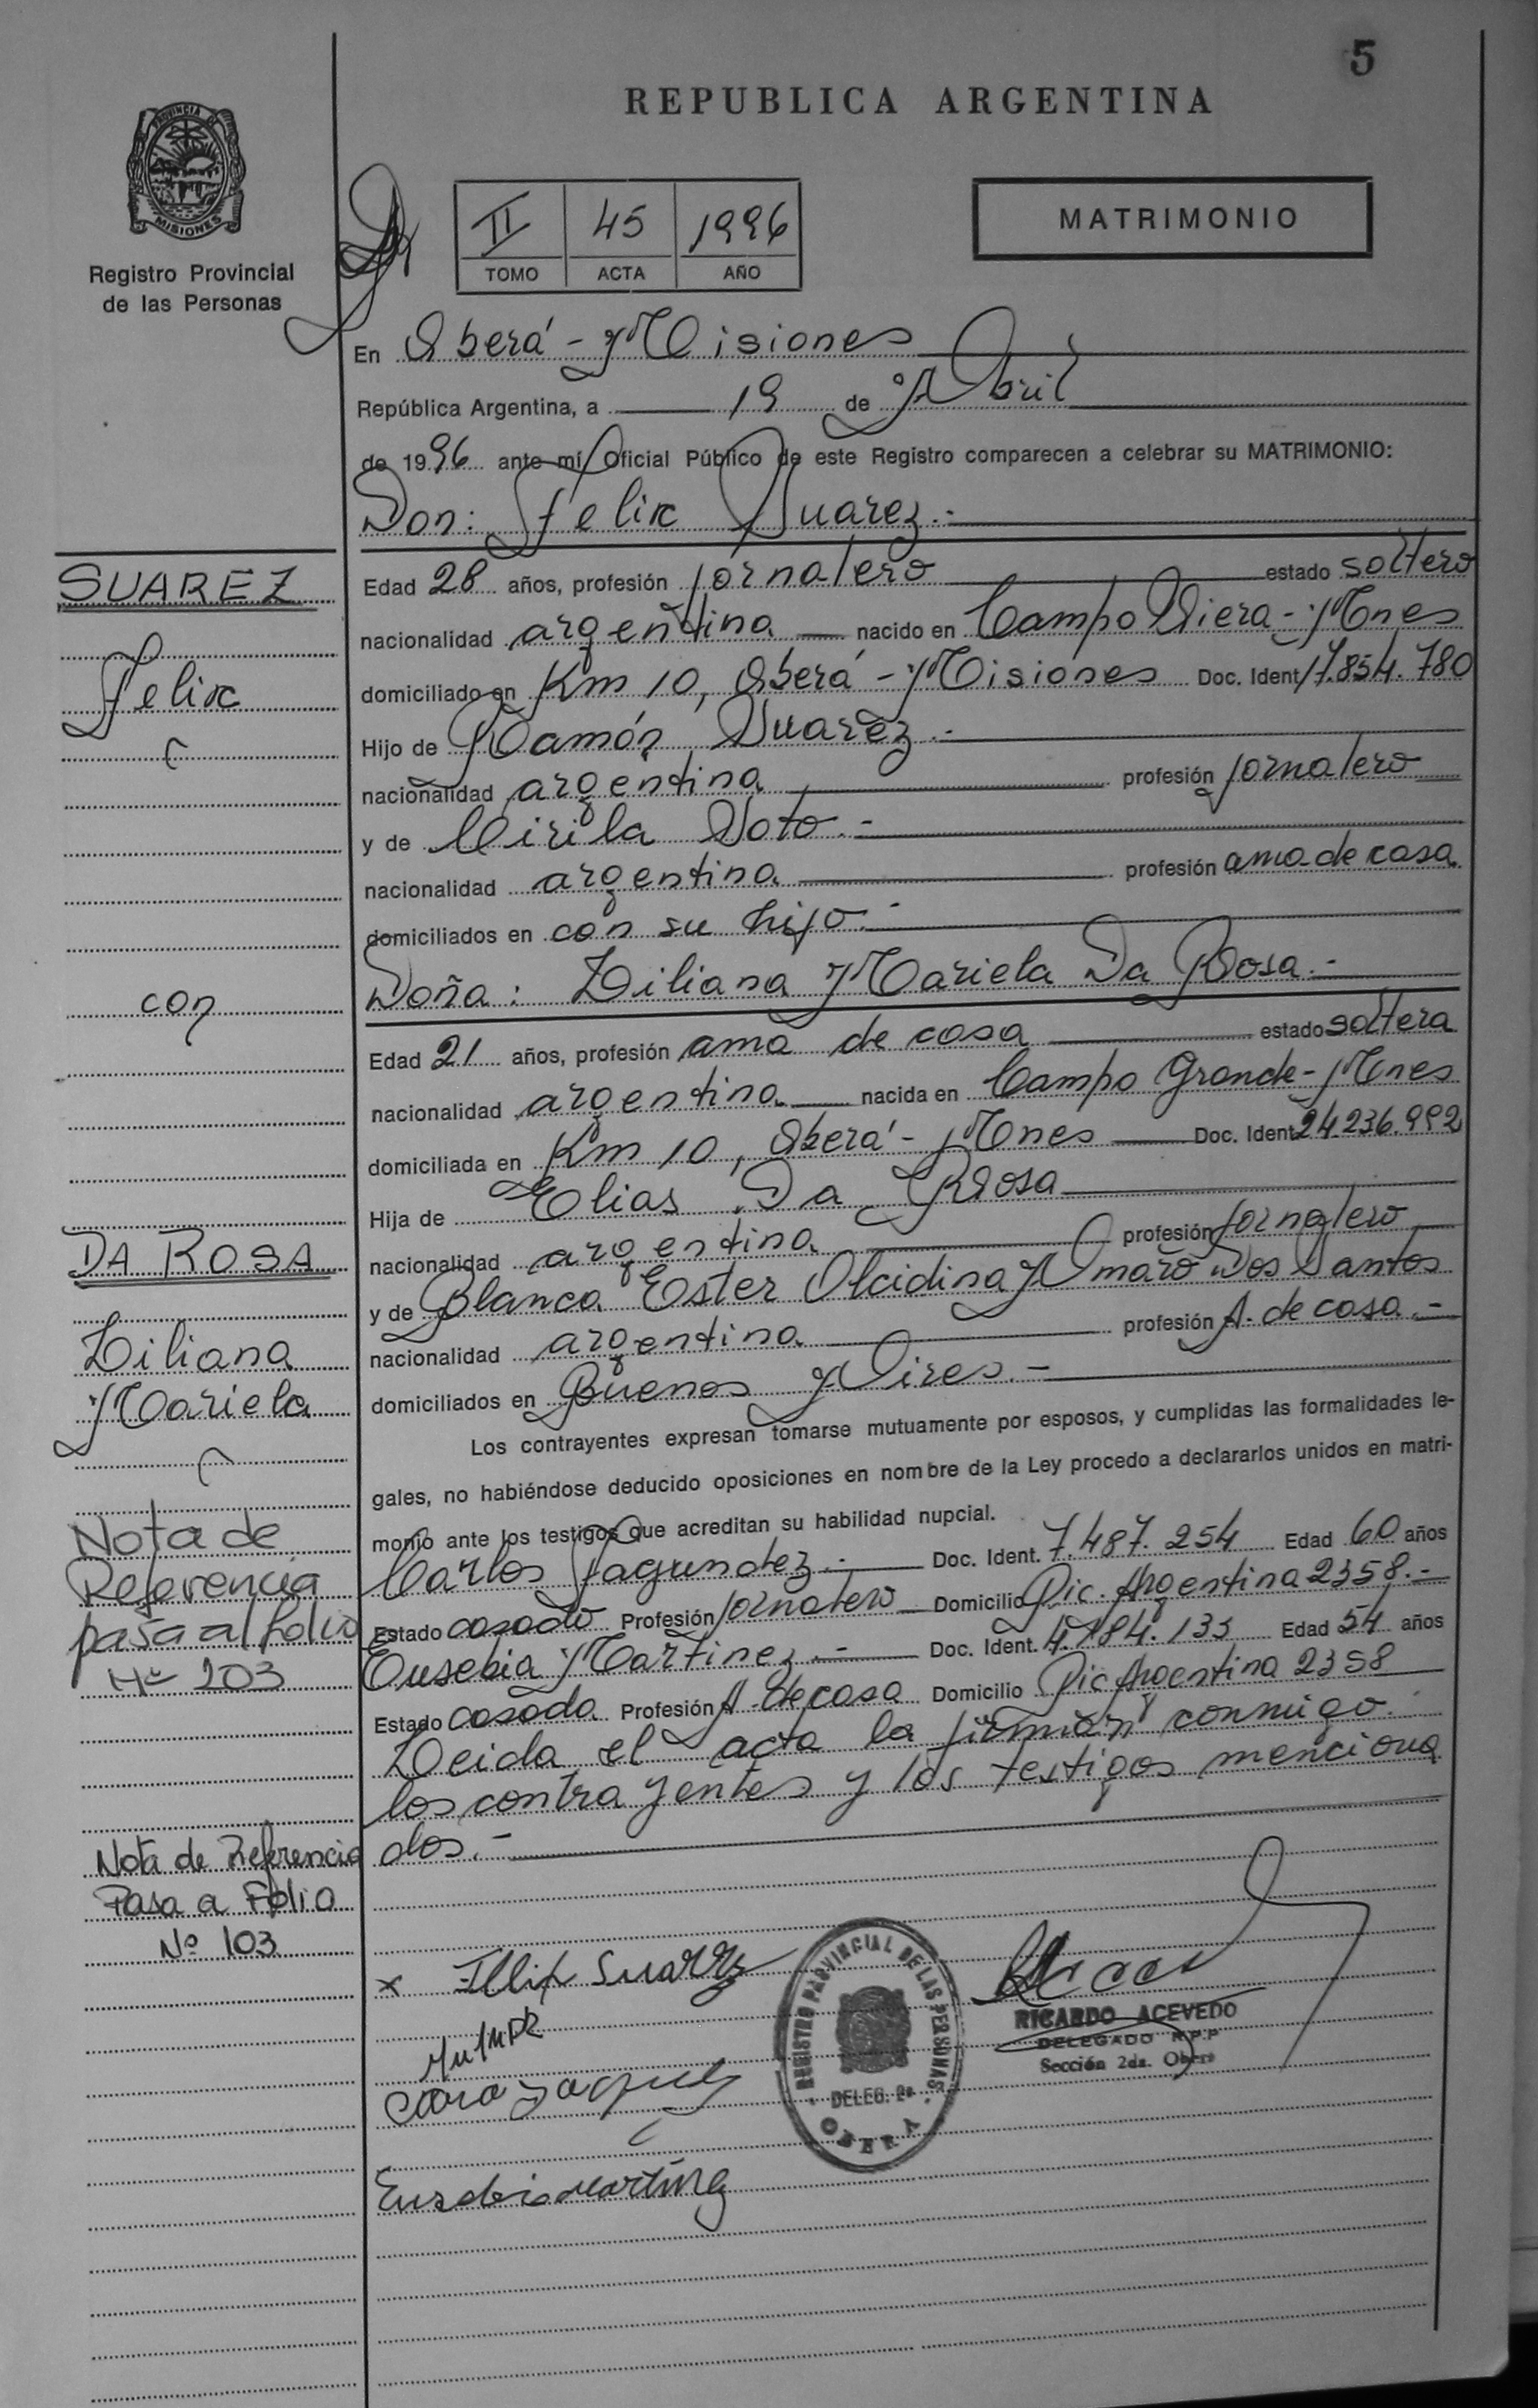 5
REPUBLICA ARGENTINA
PROVINCIA DE
MISIONES
Registro Provincial
de las Personas
II 45 1996
TOMO ACTA AÑO
MATRIMONIO
En Oberá - Misiones
República Argentina, a 19 de Abril
de 1996 ante mí, Oficial Público de este Registro comparecen a celebrar su MATRIMONIO:
Don: Felix Suarez.-
SUAREZ
Felix
con
DA ROSA
Liliana
Mariela
Nota de
Referencia
pasa al folio
Nº 203
Nota de Referencia
Pasa a Folio
Nº 103
Edad 28 años, profesión jornalero estado soltero
nacionalidad argentina nacido en Campo Viera - Mnes
domiciliado en Km 10, Oberá - Misiones Doc. Ident 17.854.780
Hijo de Ramón Suarez.-
nacionalidad argentina profesión jornalero
y de Cirila Soto.-
nacionalidad argentina profesión ama de casa
domiciliados en con su hijo.-
Doña: Liliana Mariela Da Rosa.-
Edad 21 años, profesión ama de casa estado soltera
nacionalidad argentina nacida en Campo Grande - Mnes
domiciliada en Km 10, Oberá - Mnes Doc. Ident 24.236.992
Hija de Elias Da Rosa
nacionalidad argentina profesión jornalero
y de Blanca Ester Olcidina Amaro Dos Santos
nacionalidad argentina profesión A. de casa.-
domiciliados en Buenos Aires.-
Los contrayentes expresan tomarse mutuamente por esposos, y cumplidas las formalidades le-
gales, no habiéndose deducido oposiciones en nombre de la Ley procedo a declararlos unidos en matri-
monio ante los testigos que acreditan su habilidad nupcial.
Carlos Fagundez.- Doc. Ident. 7.487.254 Edad 60 años
Estado casado Profesión jornalero Domicilio Pic. Argentina 2358.-
Eusebia Martinez.- Doc. Ident. 4.184.133 Edad 54 años
Estado casada Profesión A. de casa Domicilio Pic Argentina 2358
Leida el acta la firman conmigo
los contrayentes y los testigos menciona
dos.-
x Felix Suarez
Eusebia Martinez
REGISTRO PROVINCIAL DE LAS PERSONAS
DELEG. 2a
OBERA
RICARDO ACEVEDO
DELEGADO R.P.P
Sección 2da. Oberá